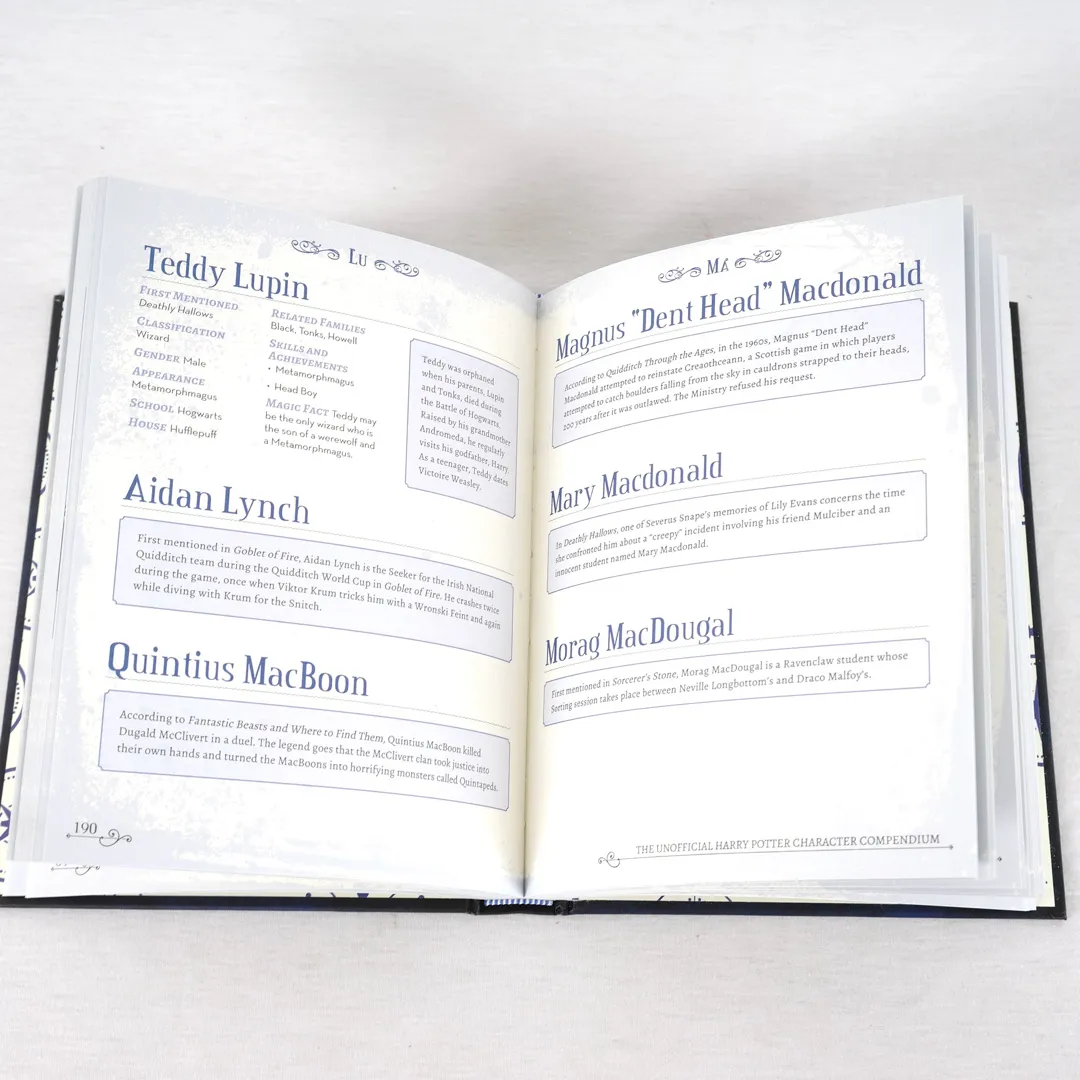 Lu
Teddy Lupin
First Mentioned
Deathly Hallows
Classification
Wizard
Gender Male
Appearance
Metamorphmagus
School Hogwarts
House Hufflepuff
Related Families
Black, Tonks, Howell
Skills and
Achievements
• Metamorphmagus
• Head Boy
Magic Fact Teddy may
be the only wizard who is
the son of a werewolf and
a Metamorphmagus.
Teddy was orphaned
when his parents, Lupin
and Tonks, died during
the Battle of Hogwarts.
Raised by his grandmother
Andromeda, he regularly
visits his godfather, Harry.
As a teenager, Teddy dates
Victoire Weasley.
Aidan Lynch
First mentioned in Goblet of Fire, Aidan Lynch is the Seeker for the Irish National
Quidditch team during the Quidditch World Cup in Goblet of Fire. He crashes twice
during the game, once when Viktor Krum tricks him with a Wronski Feint and again
while diving with Krum for the Snitch.
Quintius MacBoon
According to Fantastic Beasts and Where to Find Them, Quintius MacBoon killed
Dugald McClivert in a duel. The legend goes that the McClivert clan took justice into
their own hands and turned the MacBoons into horrifying monsters called Quintapeds.
190
Ma
Magnus "Dent Head" Macdonald
According to Quidditch Through the Ages, in the 1960s, Magnus "Dent Head"
Macdonald attempted to reinstate Creaothceann, a Scottish game in which players
attempted to catch boulders falling from the sky in cauldrons strapped to their heads,
200 years after it was outlawed. The Ministry refused his request.
Mary Macdonald
In Deathly Hallows, one of Severus Snape's memories of Lily Evans concerns the time
she confronted him about a "creepy" incident involving his friend Mulciber and an
innocent student named Mary Macdonald.
Morag MacDougal
First mentioned in Sorcerer's Stone, Morag MacDougal is a Ravenclaw student whose
Sorting session takes place between Neville Longbottom's and Draco Malfoy's.
THE UNOFFICIAL HARRY POTTER CHARACTER COMPENDIUM